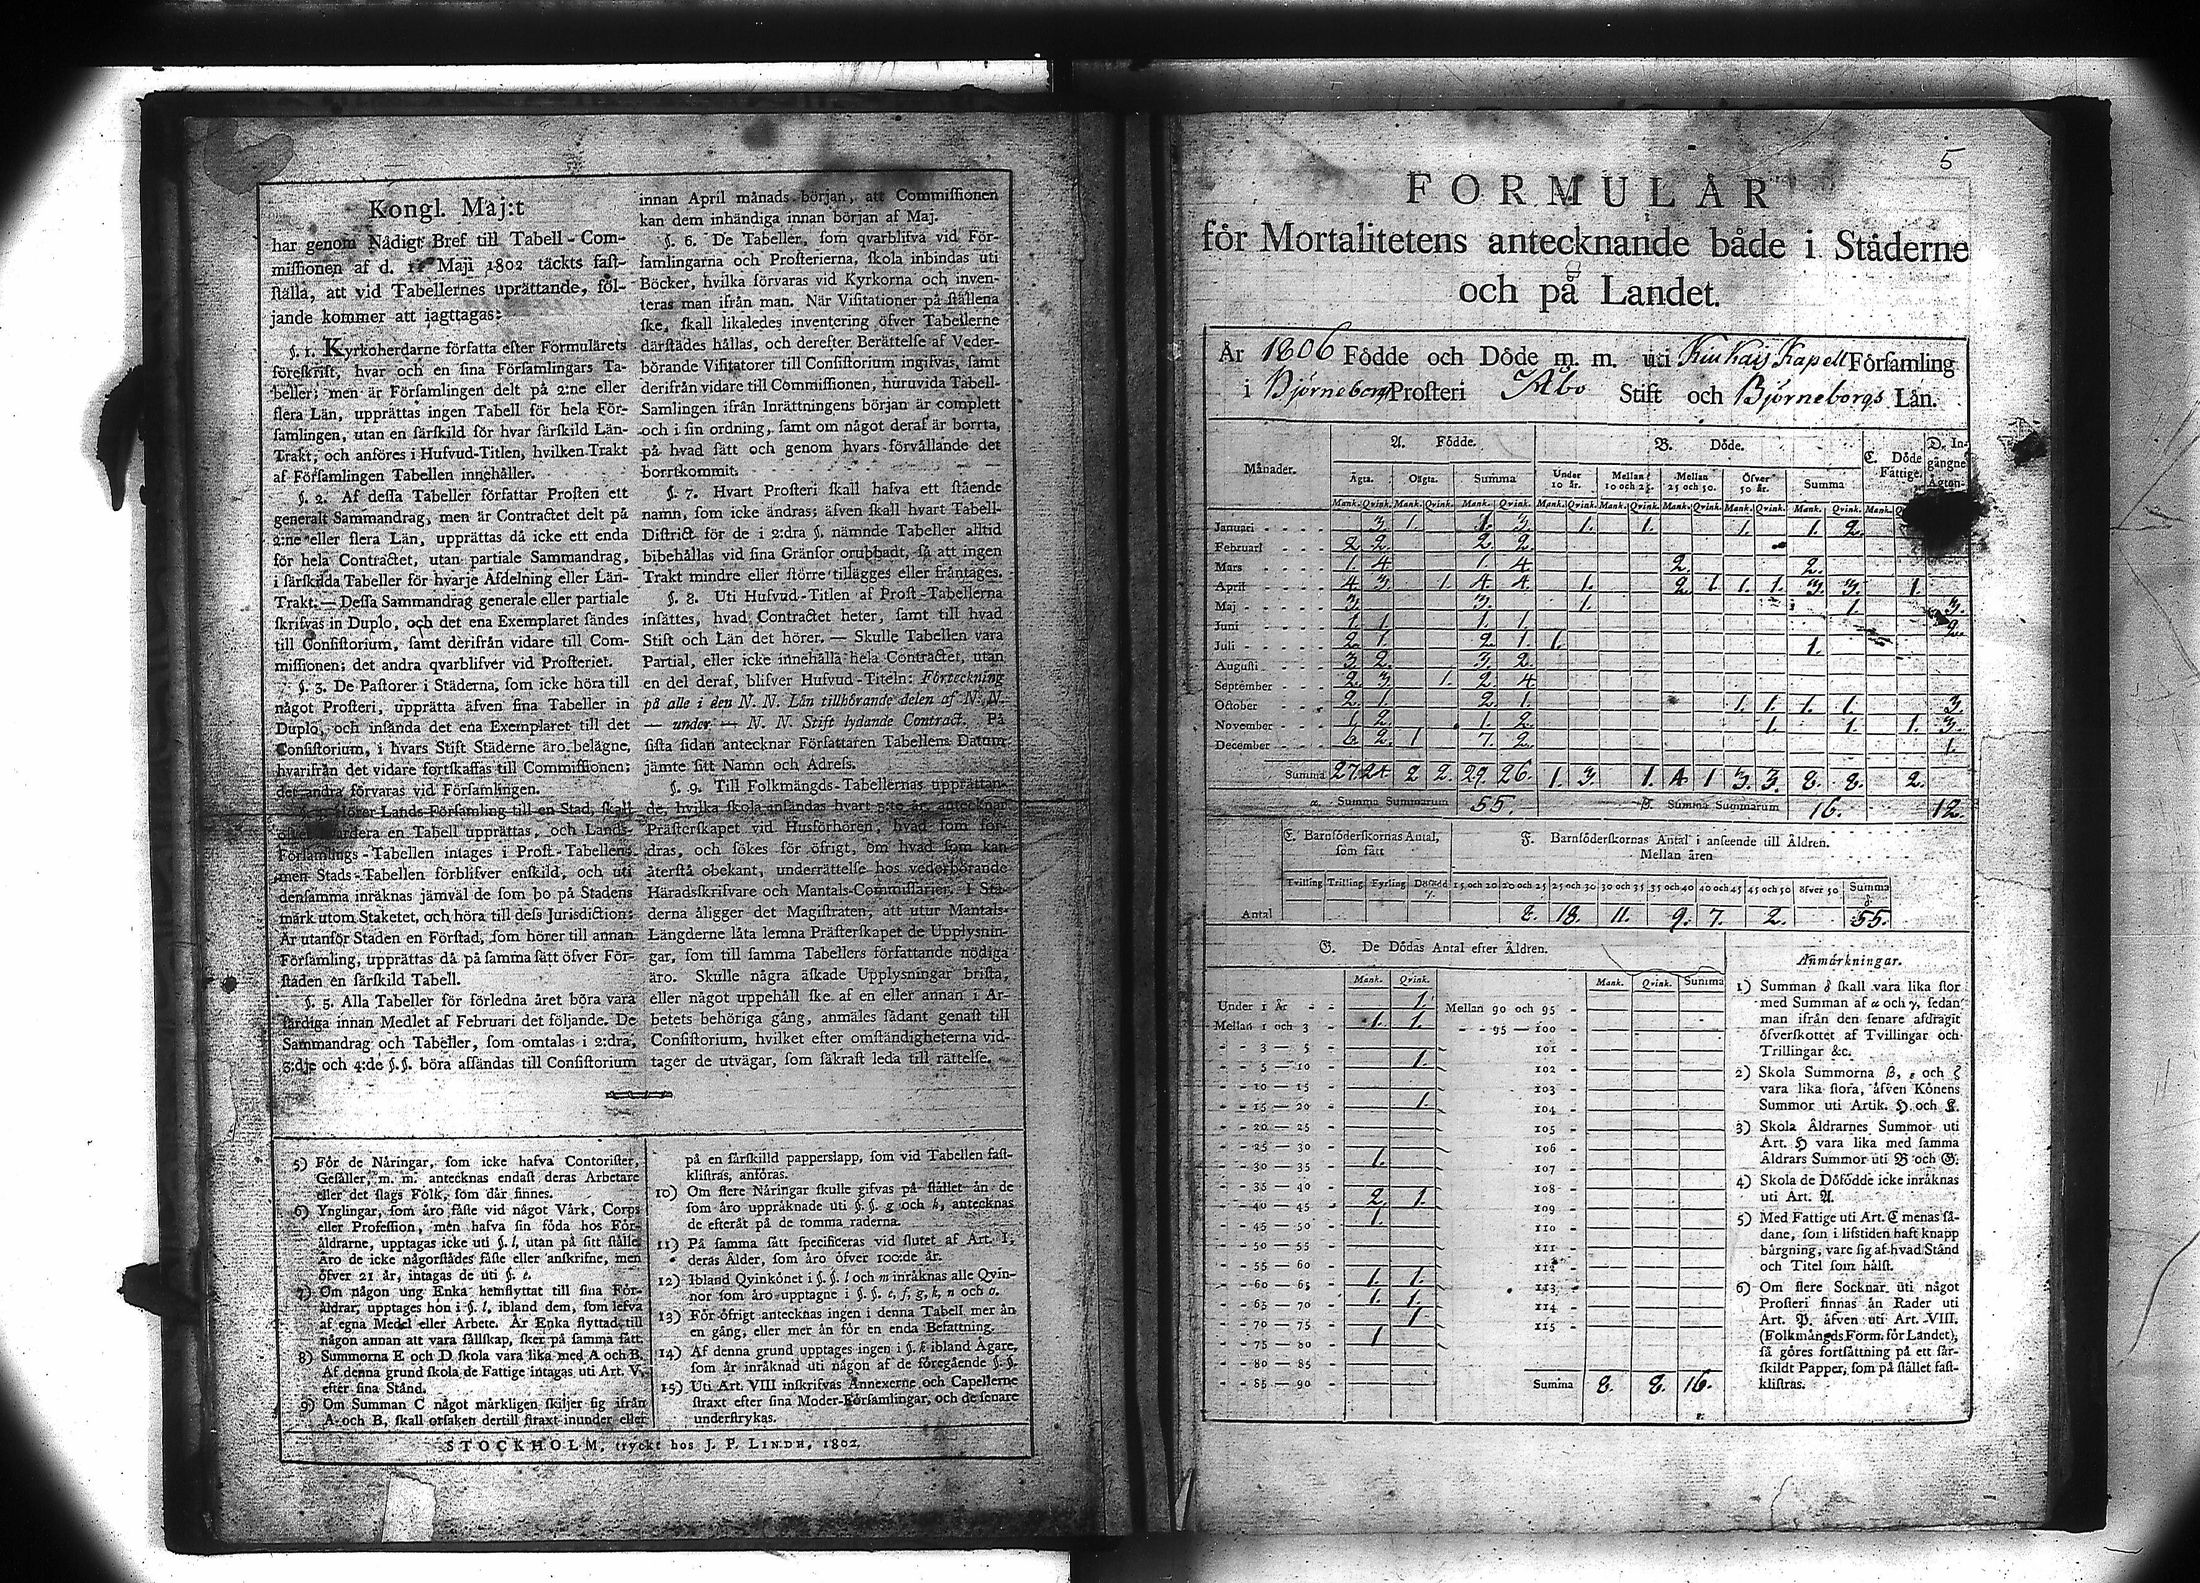 Kongl. Maj:t
har genom Nådigt Bref till Tabell-Com-
missionen af d. Maji 1802 täckts fast-
ställa, att vid Tabellernes uprättande, föl-
jande kommer att iagttagas:
§. 1. Kyrkoherdarne författa efter Formulärets
föreskrift, hvar och en sina Församlingars Ta-
beller; men är Församlingen delt på 2:ne eller
flera Län, upprättas ingen Tabell för hela För-
samlingen, utan en särskild för hvar särskild Län-
Trakt; och anföres i Hufvud-Titlen, hvilken Trakt
af Församlingen Tabellen innehåller.
§. 2. Af dessa Tabeller författar Prosten ett
generalt Sammandrag, men är Contractet delt på
2:ne eller flera Län, upprättas då icke ett enda
för hela Contractet, utan partiale Sammandrag,
i särskilda Tabeller för hvarje Afdelning eller Län-
Trakt. — Dessa Sammandrag generale eller partiale
skrifvas in Duplo, och det ena Exemplaret sändes
till Consistorium, samt derifrån vidare till Com-
missionen; det andra qvarblifver vid Prosteriet.
§. 3. De Pastorer i Städerna, som icke höra till
något Prosteri, upprätta äfven sina Tabeller in
Duplo, och insända det ena Exemplaret till det
Consistorium, i hvars Stift Städerne äro belägne,
hvarifrån det vidare fortskaffas till Commissionen;
det andra förvaras vid Församlingen.
hörer Lands-Församling till en Stad, skall
en Tabell upprättas, och Lands-
Församlings-Tabellen intages i Prost-Tabellen;
men Stads-Tabellen förblifver enskild, och uti
densamma inräknas jämväl de som bo på Stadens
mark utom Staketet, och höra till dess Jurisdiction:
Är utanför Staden en Förstad, som hörer till annan
Församling, upprättas då på samma sätt öfver För-
staden en särskild Tabell.
§. 5. Alla Tabeller för förledna året böra vara
färdiga innan Medlet af Februari det följande. De
Sammandrag och Tabeller, som omtalas i 2:dra,
3:dje och 4:de §.§. böra afsändas till Consistorium
innan April månads början, att Commissionen
kan dem inhändiga innan början af Maj.
§. 6. De Tabeller, som qvarblifva vid För-
samlingarna och Prosterierna, skola inbindas uti
Böcker, hvilka förvaras vid Kyrkorna och inven-
teras man ifrån man. När Visitationer på ställena
ske, skall likaledes inventering öfver Tabellerne
därstädes hållas, och derefter Berättelse af Veder-
börande Visitatorer till Consistorium ingifvas, samt
derifrån vidare till Commissionen, huruvida Tabell-
Samlingen ifrån Inrättningens början är complett
och i sin ordning, samt om något deraf är borrta,
på hvad sätt och genom hvars förvållande det
borrtkommit.
§. 7. Hvart Prosteri skall hafva ett stående
namn, som icke ändras; äfven skall hvart Tabell-
District för de i 2:dra §. nämnde Tabeller alltid
bibehållas vid sina Gränsor orubbadt, så att ingen
Trakt mindre eller större tillägges eller fråntages.
§. 8. Uti Hufvud-Titlen af Prost-Tabellerna
insättes, hvad Contractet heter, samt till hvad
Stift och Län det hörer. — Skulle Tabellen vara
Partial, eller icke innehålla hela Contractet, utan
en del deraf, blifver Hufvud-Titeln: Förteckning
på alle i den N. N. Län tillhörande delen af N. N.
— under — N. N. Stift lydande Contract. På
sista sidan antecknar Författaren Tabellens Datum
jämte sitt Namn och Adress.
§. 9. Till Folkmängds-Tabellernas upprättan-
de, hvilka skola insändas hvart 5:te år, antecknar
Prästerskapet vid Husförhören, hvad som for-
dras, och sökes för öfrigt, om hvad som kan
återstå obekant, underrättelse hos vederbörande
Häradsskrifvare och Mantals-Commissarier. I Stä-
derna åligger det Magistraten, att utur Mantals-
Längderne låta lemna Prästerskapet de Upplysnin-
gar, som till samma Tabellers författande nödiga
äro. Skulle några äskade Upplysningar brista,
eller något uppehåll ske af en eller annan i Ar-
betets behöriga gång, anmäles sådant genast till
Consistorium, hvilket efter omständigheterna vid-
tager de utvägar, som säkrast leda till rättelse.
5) För de Näringar, som icke hafva Contorister,
Gesäller, m. m. antecknas endast deras Arbetare
eller det slags Folk, som där finnes.
6) Ynglingar, som äro fäste vid något Värk, Corps
eller Profession, men hafva sin föda hos För-
äldrarne, upptagas icke uti §. l, utan på sitt ställe
Äro de icke någorstädes fäste eller anskrifne, men
öfver 21 år, intagas de uti §. e.
7) Om någon ung Enka hemflyttat till sina För-
äldrar, upptages hon i §. l, ibland dem, som lefva
af egna Medel eller Arbete. Är Enka flyttad till
någon annan att vara sällskap, sker på samma sätt.
8) Summorna E och D skola vara lika med A och B.
Af denna grund skola de Fattige intagas uti Art. V,
efter sina Stånd.
9) Om Summan C något märkligen skiljer sig ifrån
A och B, skall orsaken dertill straxt inunder eller
på en särskilld papperslapp, som vid Tabellen fast-
klistras, anföras.
10) Om flere Näringar skulle gifvas på stället än de
som äro uppräknade uti §. §. g och h, antecknas
de efteråt på de tomma raderna.
11) På samma sätt specificeras vid slutet af Art. I,
deras Ålder, som äro öfver 100:de år.
12) Ibland Qvinkönet i §. §. l och m inräknas alle Qvin-
nor som äro upptagne i §. §. e, f, g, k, n och o.
13) För öfrigt antecknas ingen i denna Tabell mer än
en gång, eller mer än för en enda Befattning.
14) Af denna grund upptages ingen i §. k ibland Ägare,
som är inräknad uti någon af de föregående §. §.
15) Uti Art. VIII inskrifvas Annexerne och Capellerne
straxt efter sina Moder-Församlingar, och de senare
understrykas.
STOCKHOLM, tryckt hos J. P. LINDH, 1802.
5
FORMULÄR
för Mortalitetens antecknande både i Städerne
och på Landet.
År 1806 Födde och Döde m. m. uti Kiukais Kapell Församling
i Björneborgs Prosteri Åbo Stift och Björneborgs Län.
Månader. A. Födde. B. Döde. C. Döde Fattige. D. In-
gångne
Ägta. Oägta. Summa Under 10 år. Mellan 10 och 25. Mellan 25 och 50. Öfver 50 år. Summa
Mank. Qvink. Mank. Qvink. Mank. Qvink. Mank. Qvink. Mank. Qvink. Mank. Qvink. Mank. Qvink. Mank. Qvink. Mank.
Januari 3 1. 1. 3 1. 1. 1. 1. 2.
Februari 2 2. 2. 2
Mars 1 4 1. 4 2. 2.
April 4 3 1. 4 4 1. 2. 1. 1. 1. 3. 3. 1.
Maj 3. 3. 1. 1. 3.
Juni 1 1 1. 1 2.
Juli 2. 1. 2. 1. 1. 1.
Augusti 3 2. 3. 2.
September 2. 3 1. 2. 4
October 2. 1 2. 1. 1. 1. 1. 1. 3.
November 1 2. 1. 2. 1. 1. 1. 3.
December 6 2. 1 7. 2. 1.
Summa 27 24 2 2. 29 26. 1. 3. 1. 4 1 3. 3. 8. 8. 2.
α. Summa Summarum 55. β. Summa Summarum 16. 12.
E. Barnföderskornas Antal,
som fått
F. Barnföderskornas Antal i anseende till Åldren.
Mellan åren
Tvilling Trilling Fyrling Dödfödd γ. 15 och 20 20 och 25 25 och 30 30 och 35 35 och 40 40 och 45 45 och 50 öfver 50 Summa δ
Antal 8. 18. 11. 9. 7. 2. 55.
G. De Dödas Antal efter Åldren.
Mank. Qvink. Mank. Qvink. Summa
Under 1 År - - 1. Mellan 90 och 95 -
Mellan 1 och 3 - 1. 1. - - 95 — 100 -
- - 3 — 5 - 101 -
- - 5 — 10 - 1. 102 -
- - 10 — 15 - 103 -
- - 15 — 20 - 1. 104 -
- - 20 — 25 - 105 -
- - 25 — 30 - 106 -
- - 30 — 35 - 1. 107 -
- - 35 — 40 - 108 -
- - 40 — 45 - 2. 1. 109 -
- - 45 — 50 - 1. 110 -
- - 50 — 55 - 111 -
- - 55 — 60 - 112 -
- - 60 — 65 - 1. 1. 113 -
- - 65 — 70 - 1. 1. 114 -
- - 70 — 75 - 1 115 -
- - 75 — 80 - 1
- - 80 — 85 -
- - 85 — 90 - Summa 8. 8. 16.
Anmärkningar.
1) Summan δ skall vara lika stor
med Summan af α och γ, sedan
man ifrån den senare afdragit
öfverskottet af Tvillingar och
Trillingar &c.
2) Skola Summorna β, ε och ζ
vara lika stora, äfven Könens
Summor uti Artik. H. och L.
3) Skola Åldrarnes Summor uti
Art. H vara lika med samma
Åldrars Summor uti B och G.
4) Skola de Dödfödde icke inräknas
uti Art. A.
5) Med Fattige uti Art. C menas så-
dane, som i lifstiden haft knapp
bärgning, vare sig af hvad Stånd
och Titel som hälst.
6) Om flere Socknar uti något
Prosteri finnas än Rader uti
Art. P. äfven uti Art. VIII.
(Folkmängds Form. för Landet),
så göres fortsättning på ett sär-
skildt Papper, som på stället fast-
klistras.